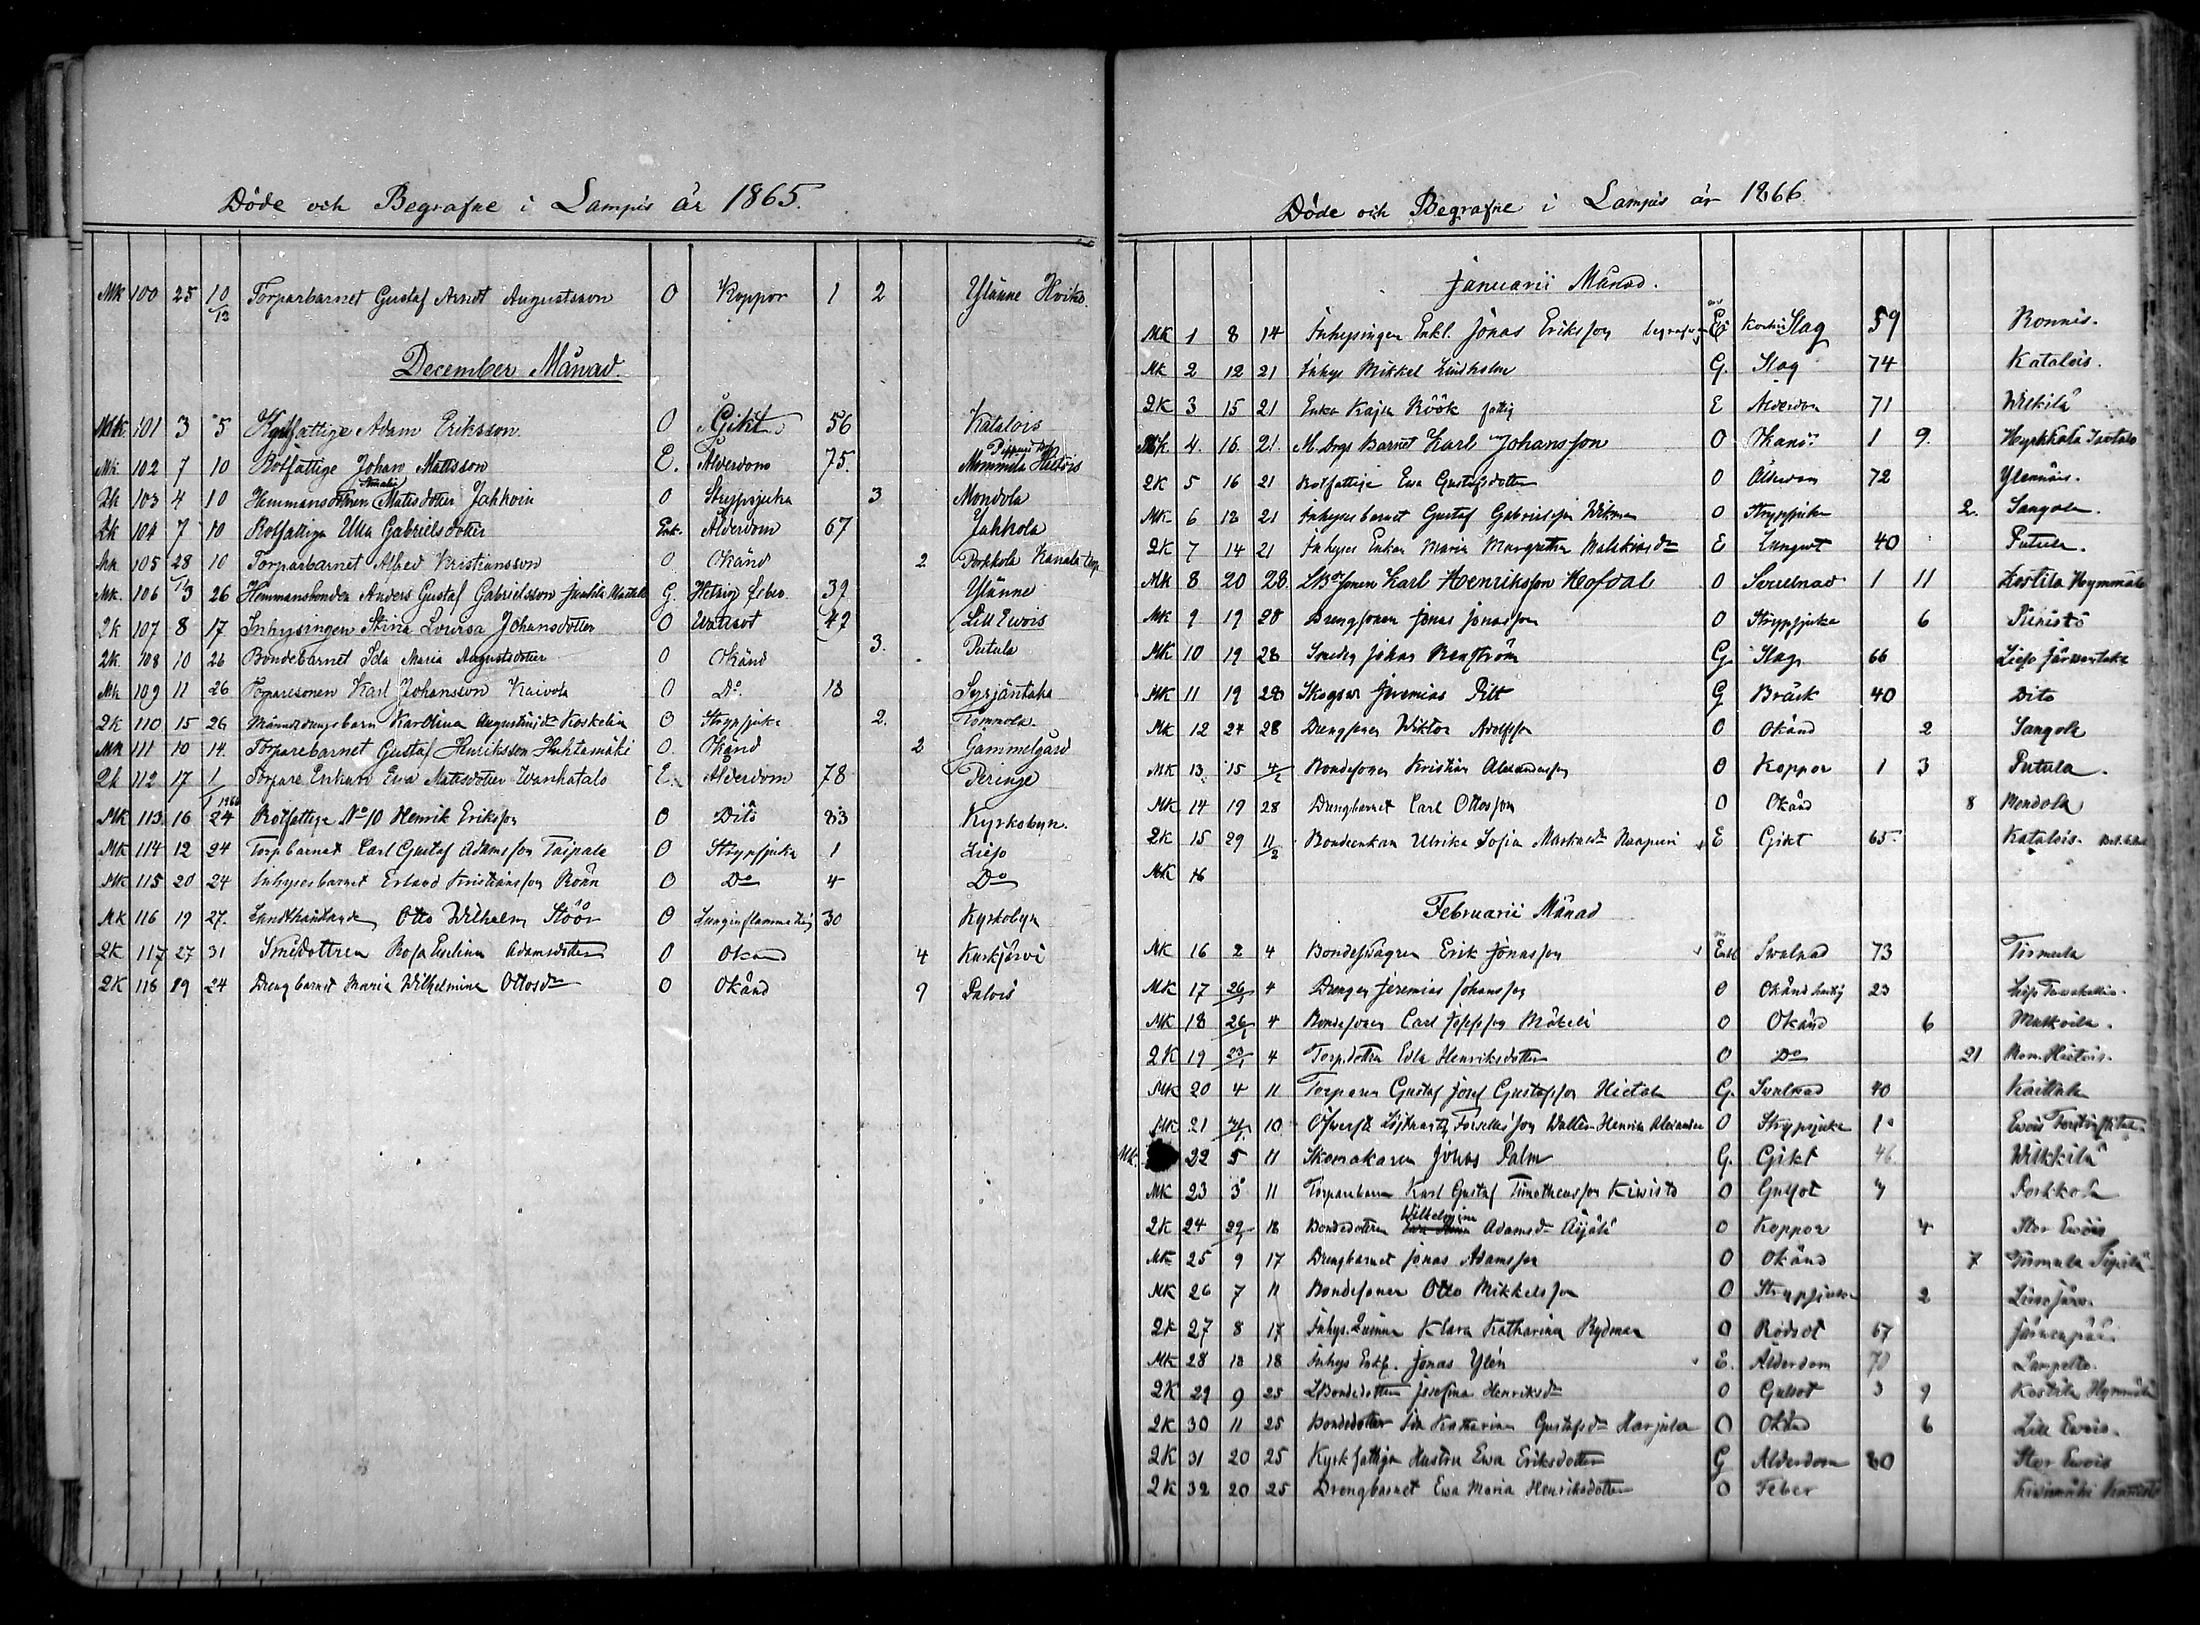 Döde och Begrafne i Lampis år 1865.
Mk 100 25 10/13 Torparbarnet Gustaf Arndt Augustsson O Koppor 1 2 Ylänne
December Månad.
Mk 101 3 5 Adam Eriksson O Gikt 56 Katalois
Mk 102 7 10 Rotfattige Johan Mattsson E. Ålderdom 75. Mommela Hietois
Qk 103 4 10 Hemmansdottren Amalia Matsdotter Jahkoin O Strypsjuka 3 Mondola
Qk 104 7 10 Rotfattiga Ulla Gabrielsdotter Enk. Ålderdom 67 Jahkola
Mk 105 28 10 Torparbarnet Alfred Kristiansson O Okänd 2 Porkkola
Mk. 106 13 26 Hemmansbonden Anders Gustaf Gabrielsson G. Hetsig feber 39 Ylänne
Qk 107 8 17 Inhysingen Stina Lovisa Johansdotter O Wattsot 42 Lill Ewois
Qk. 108 10 26 Bondebarnet Ida Maria Augustsdotter O Okänd 3. Putula
Mk 109 11 26 Torparesonen Karl Johansson Kaivola O Do. 18 Syrjäntaka
Qk 110 15 26 Karolina Augustinsdr Koskelin O Strypsjuka 2. Tömmola
Mk 111 10 14. Torparebarnet Gustaf Henriksson Huhtamäki O. Okänd 2 Gammelgård
Qk 112 17 1/1 1866 Torpare Enkan Ewa Matsdotter Wanhatalo E. Ålderdom 78 Peringe
Mk 113 16 24 Rotfattige No 10 Henrik Eriksson O Dito 83 Kyrkobyn.
Mk 114 12 24 Torp barnet Carl Gustaf Adamsson Taipale O Strypsjuka 1 Lieso
Mk 115 20 24 Inhysesbarnet Erland Kristiansson Rönn O Do 4 Do
Mk 116 19 27. Landthandlande Otto Wilhelm Höör O 30 Kyrkobyn
Qk 117 27 31 Smeddottren Rosa Evelina Adamsdotter O Okänd 4 Kurkjärvi
Qk 118 19 24 Drengbarnet Maria Wilhelmina Ottosdr O Okänd 9 Palois
Döde och Begrafne i Lampis år 1866.
Januarii Månad.
Mk 1 8 14 Inhysingen Enkl. Jonas Eriksson begrafven E Slag 59 Ronnis.
Mk 2 12 21 Inhys Mikkel Lindholm G. Slag 74 Katalois.
Qk 3 15 21 Enka Kajsa Röök fattig E Ålderdom 71 Wilkilä
Mk 4. 16. 21. Barnet Karl Johansson O Okänd 1 9.
Qk 5 16 21 Rotfattige Ewa Gustafsdotter O Ålderdom 72
Mk 6 12 21 Inhyses barnet Gustaf Gabrielsson Wikman O Strypsjuka 2. Sangola.
Qk 7 14 21 Inhyses Enkan Maria Margretha Malakiasdr E Lungsot 40 Putula.
Mk 8 20 28. Karl Henriksson Hofdal O Svullnad 1 11 Kostila Hymmälä
Mk 9 19 28 Drengsonen Jonas Jonasson O Strypsjuka 6
Mk 10 19 28 Smeden Johan Bengström G. Slag 66 Lieso
Mk 11 19 28 Jeremias Pilt G Bråck 40 Dito
Mk 12 24 28 Drengsonen Wiktor Adolfsson O Okänd 2 Sangola
Mk 13. 15 4/2 Bondesonen Kristian Alexandersson O Koppor 1 3 Putula.
Mk 14 19 28 Drengbarnet Carl Ottosson O Okänd 8 Mondola
Qk 15 29 11/2 Bondeenkan Ulrika Sofia Markusdr Naapuri E Gikt 65. Katalois.
Mk 16
Februarii Månad
Mk 16 2 4 Bondesvågern Erik Jonasson Enkl Svulnad 73
Mk 17 26/1 4 Drengen Jeremias Johansson O Okänd 23
Mk 18 26/1 4 Bondesonen Carl Josefsson Mäkelä O Okänd 6
Qk 19 23/1 4 Torp.dottren Edla Henriksdotter O Do 21
Mk 20 4 11 Torparen Gustaf Josef Gustafsson Hietala G. Svulnad 40
Mk 21 31/1 10 Walter Henrik Alexander O Strypsjuka 1
Mk. 22 5 11 Skomakaren Johan Palm G. Gikt 46 Wilkkilä
Mk 23 3 11 Torparebarn Karl Gustaf Timotheusson Kivistö O Gulsot 7 Porkkola
Qk 24 29/1 18 Bondedottren Wilhelmina Adamsdr Äijälä O Koppor 4 Stor Ewois
Mk 25 9 17 Drengbarnet Jonas Adamsson O Okänd 7
Mk 26 7 11 Bondesonen Otto Mikkelsson O Strypsjuka 2
Qk 27 8 17 Klara Katharina Rydman O Rödsot 67 Järvenpää
Mk 28 18 18 Inhys Enkl. Jonas Ylén E. Ålderdom 70
Qk 29 9 25 Josefina Henriksdr O Gulsot 3 9 Kostila Hymmälä
Qk 30 11 25 Bondedotter Ida Katharina Gustafsdr Harjula O Okänd 6 Lill Ewois.
Qk 31 20 25 Kyrkfattiga Hustru Ewa Eriksdotter G Ålderdom 80 Stor Ewois
Qk 32 20 25 Drengbarnet Ewa Maria Henriksdotter O Feber